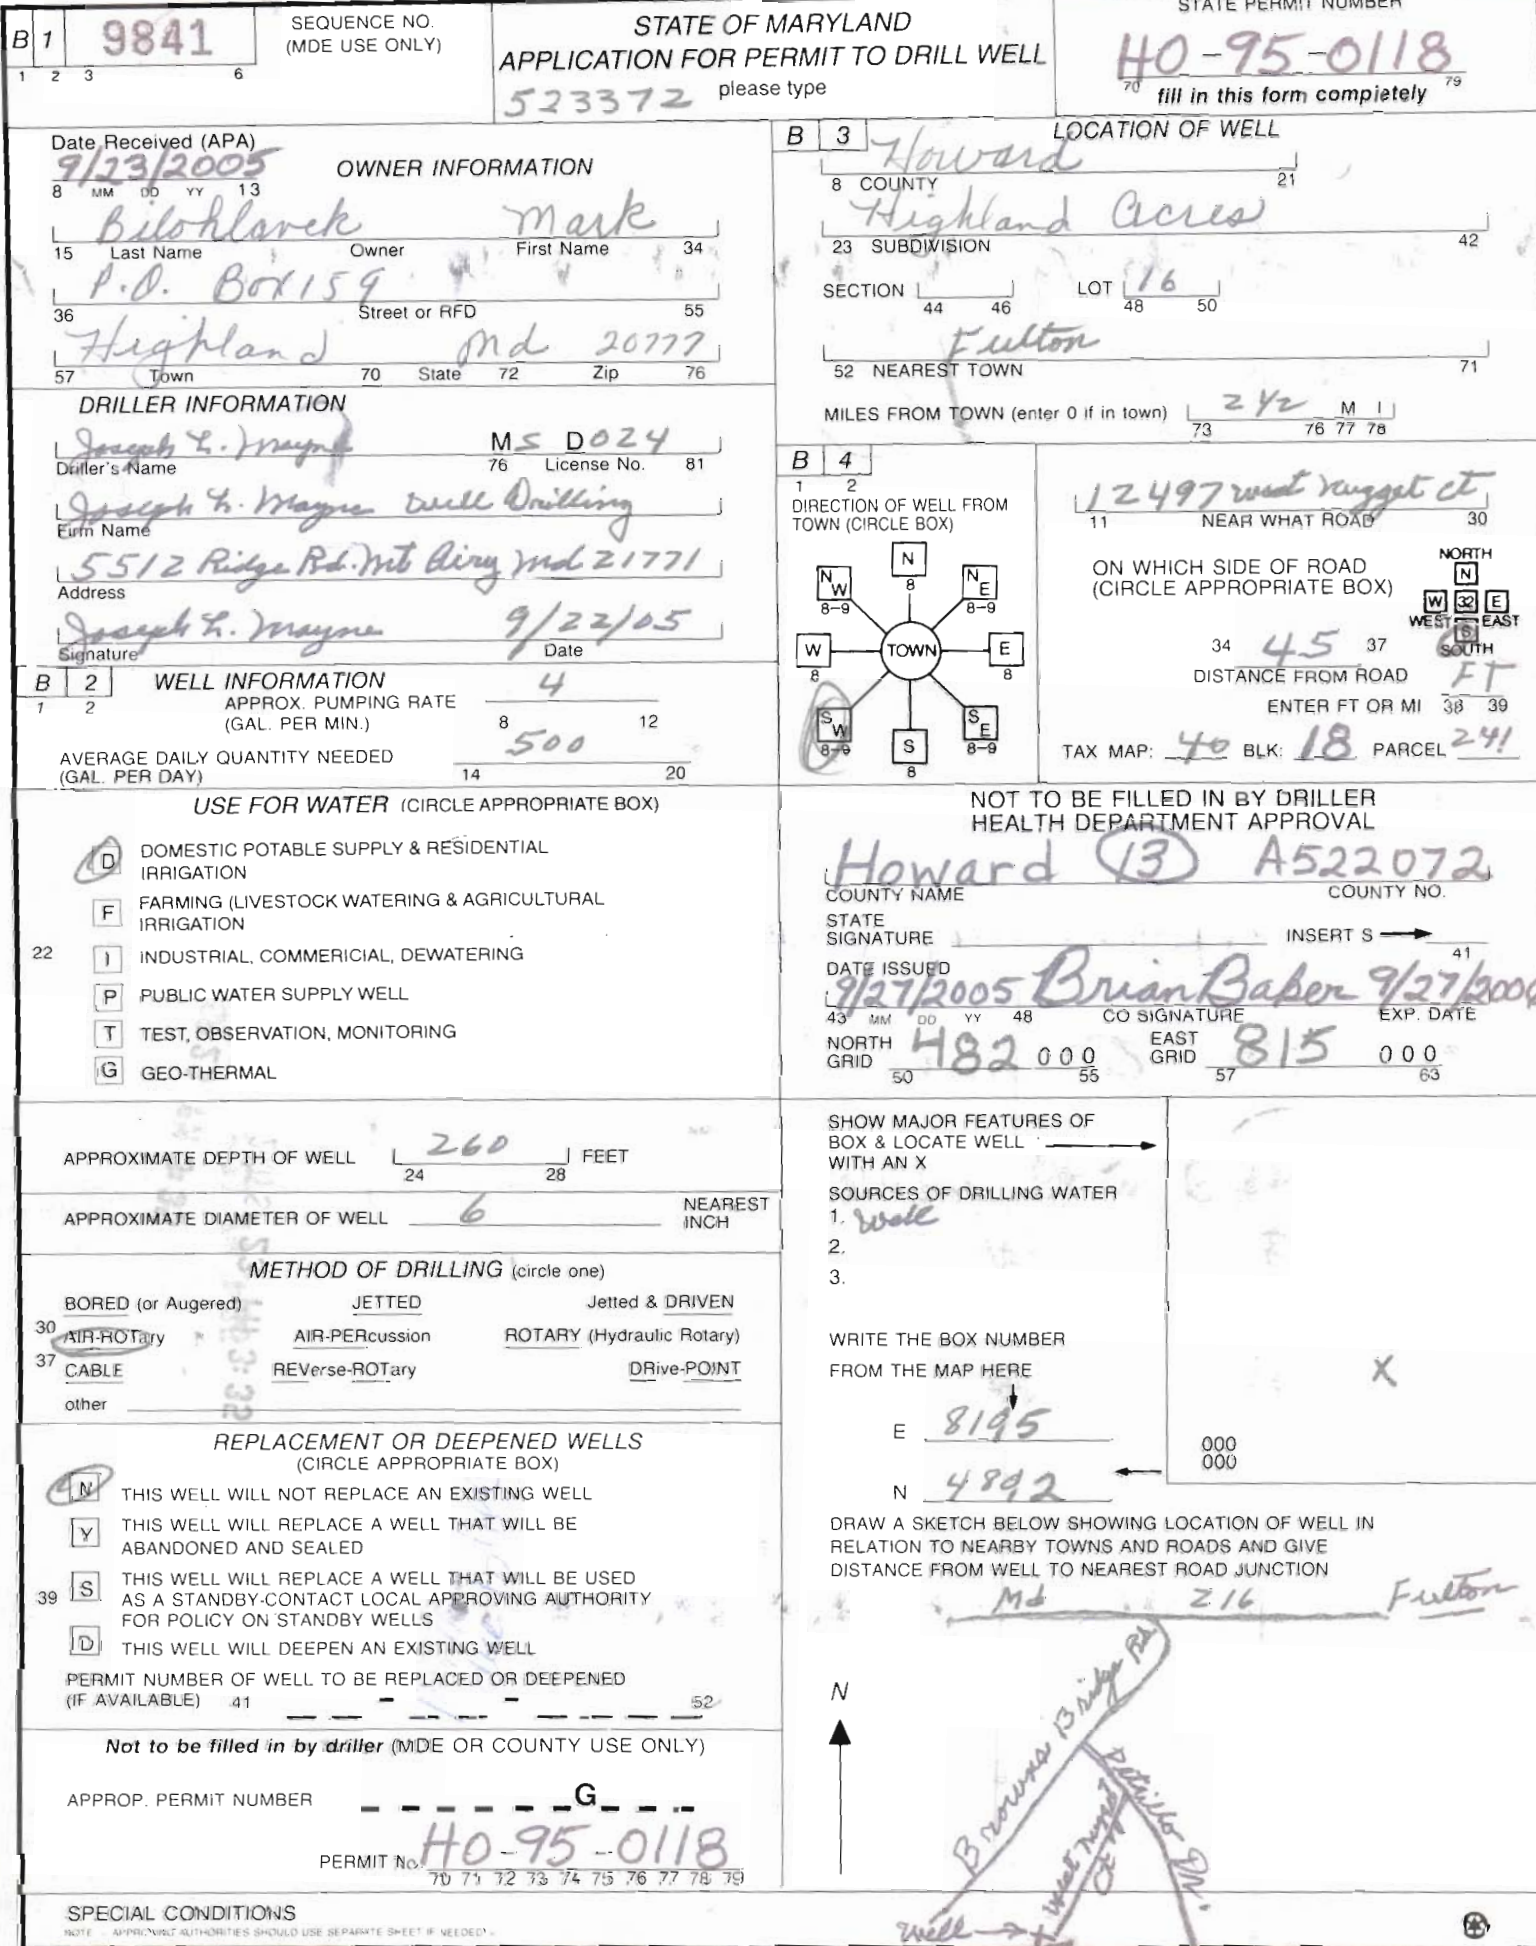 B 1 9841
1 2 3 6
SEQUENCE NO.
(MDE USE ONLY)
STATE OF MARYLAND
APPLICATION FOR PERMIT TO DRILL WELL
523372 please type
STATE PERMIT NUMBER
HO-95-0118
70 79
fill in this form completely
Date Received (APA)
9/23/2005
8 MM DD YY 13
OWNER INFORMATION
Bilohlavek Mark
15 Last Name Owner First Name 34
P.O. Box 159
36 Street or RFD 55
Highland Md 20777
57 Town 70 State 72 Zip 76
DRILLER INFORMATION
Joseph L. Mayne MS D024
Driller's Name 76 License No. 81
Joseph L. Mayne Well Drilling
Firm Name
5512 Ridge Rd. Mt Airy Md 21771
Address
Joseph L. Mayne 9/22/05
Signature Date
B 2 WELL INFORMATION
1 2
APPROX. PUMPING RATE
(GAL. PER MIN.) 4
8 12
AVERAGE DAILY QUANTITY NEEDED
(GAL. PER DAY) 500
14 20
USE FOR WATER (CIRCLE APPROPRIATE BOX)
D DOMESTIC POTABLE SUPPLY & RESIDENTIAL
IRRIGATION
F FARMING (LIVESTOCK WATERING & AGRICULTURAL
IRRIGATION
22 I INDUSTRIAL, COMMERICIAL, DEWATERING
P PUBLIC WATER SUPPLY WELL
T TEST, OBSERVATION, MONITORING
G GEO-THERMAL
APPROXIMATE DEPTH OF WELL 260 FEET
24 28
APPROXIMATE DIAMETER OF WELL 6 NEAREST
INCH
METHOD OF DRILLING (circle one)
BORED (or Augered) JETTED Jetted & DRIVEN
30 AIR-ROTary AIR-PERcussion ROTARY (Hydraulic Rotary)
37 CABLE REVerse-ROTary DRive-POINT
other
REPLACEMENT OR DEEPENED WELLS
(CIRCLE APPROPRIATE BOX)
N THIS WELL WILL NOT REPLACE AN EXISTING WELL
Y THIS WELL WILL REPLACE A WELL THAT WILL BE
ABANDONED AND SEALED
39 S THIS WELL WILL REPLACE A WELL THAT WILL BE USED
AS A STANDBY-CONTACT LOCAL APPROVING AUTHORITY
FOR POLICY ON STANDBY WELLS
D THIS WELL WILL DEEPEN AN EXISTING WELL
PERMIT NUMBER OF WELL TO BE REPLACED OR DEEPENED
(IF AVAILABLE) 41 - - 52
Not to be filled in by driller (MDE OR COUNTY USE ONLY)
APPROP. PERMIT NUMBER G
PERMIT No. HO-95-0118
70 71 72 73 74 75 76 77 78 79
SPECIAL CONDITIONS
NOTE - APPROVING AUTHORITIES SHOULD USE SEPARATE SHEET IF NEEDED
B 3 LOCATION OF WELL
Howard
8 COUNTY 21
Highland Acres
23 SUBDIVISION 42
SECTION LOT 16
44 46 48 50
Fulton
52 NEAREST TOWN 71
MILES FROM TOWN (enter 0 if in town) 2 1/2 M I
73 76 77 78
B 4
1 2
DIRECTION OF WELL FROM
TOWN (CIRCLE BOX)
N
8
NW NE
8-9 8-9
W TOWN E
8 8
SW SE
8-9 8-9
S
8
12497 West Nugget Ct
11 NEAR WHAT ROAD 30
ON WHICH SIDE OF ROAD
(CIRCLE APPROPRIATE BOX)
NORTH
N
W 32 E
WEST EAST
S
SOUTH
34 45 37
DISTANCE FROM ROAD
ENTER FT OR MI FT
38 39
TAX MAP: 40 BLK: 18 PARCEL 241
NOT TO BE FILLED IN BY DRILLER
HEALTH DEPARTMENT APPROVAL
Howard 13 A522072
COUNTY NAME COUNTY NO.
STATE
SIGNATURE INSERT S
41
DATE ISSUED
9/27/2005 Brian Baker 9/27/2006
43 MM DD YY 48 CO SIGNATURE EXP. DATE
NORTH
GRID 482 000
50 55
EAST
GRID 815 000
57 63
SHOW MAJOR FEATURES OF
BOX & LOCATE WELL
WITH AN X
SOURCES OF DRILLING WATER
1. Well
2.
3.
WRITE THE BOX NUMBER
FROM THE MAP HERE
X
E 8195
000
000
N 4892
DRAW A SKETCH BELOW SHOWING LOCATION OF WELL IN
RELATION TO NEARBY TOWNS AND ROADS AND GIVE
DISTANCE FROM WELL TO NEAREST ROAD JUNCTION
Md 216 Fulton
N
Browns Bridge Rd
West Nugget Ct
Dr.
Well